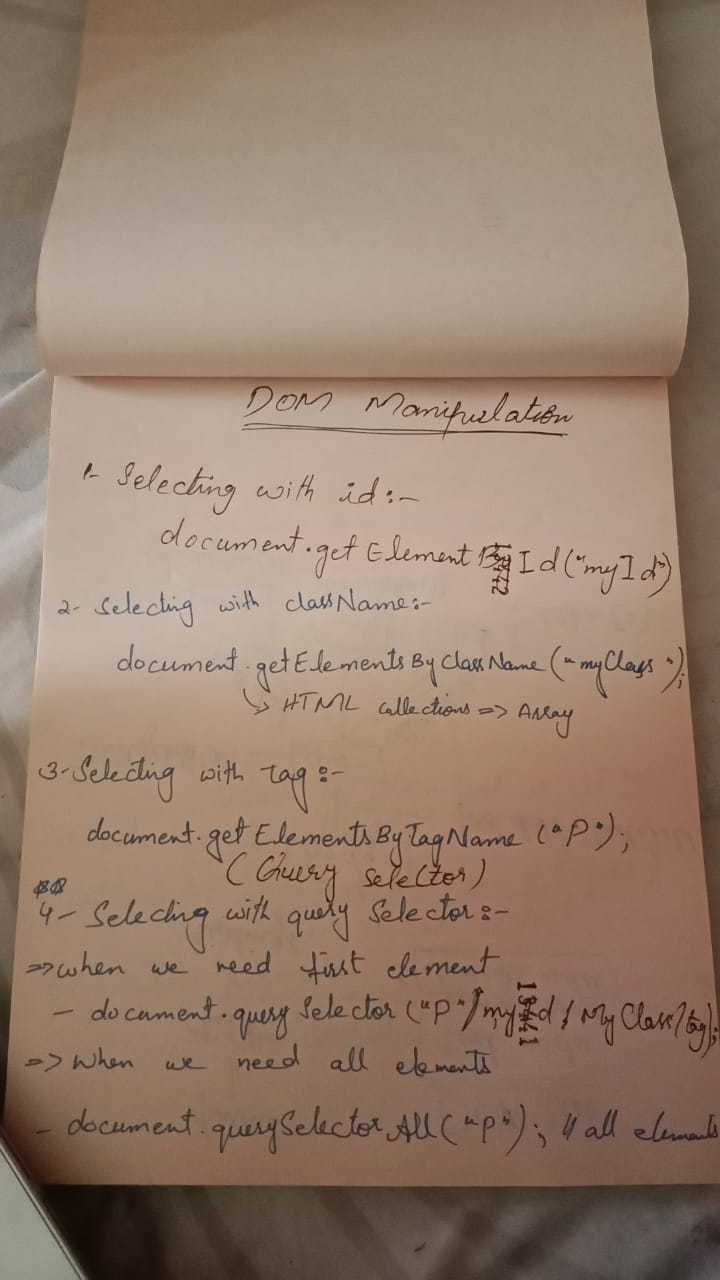 DOM Manipulation
1- Selecting with id:-
document.getElementById("myId")
2- Selecting with className:-
document.getElementsByClassName("myClass");
↳ HTML collections => Array
3- Selecting with Tag:-
document.getElementsByTagName("P");
(Query Selector)
4- Selecting with query Selector:-
=> when we need first element
- document.querySelector("P"/my d / My Class/tag);
=> When we need all elements
- document.querySelectorAll("p"); // all elements